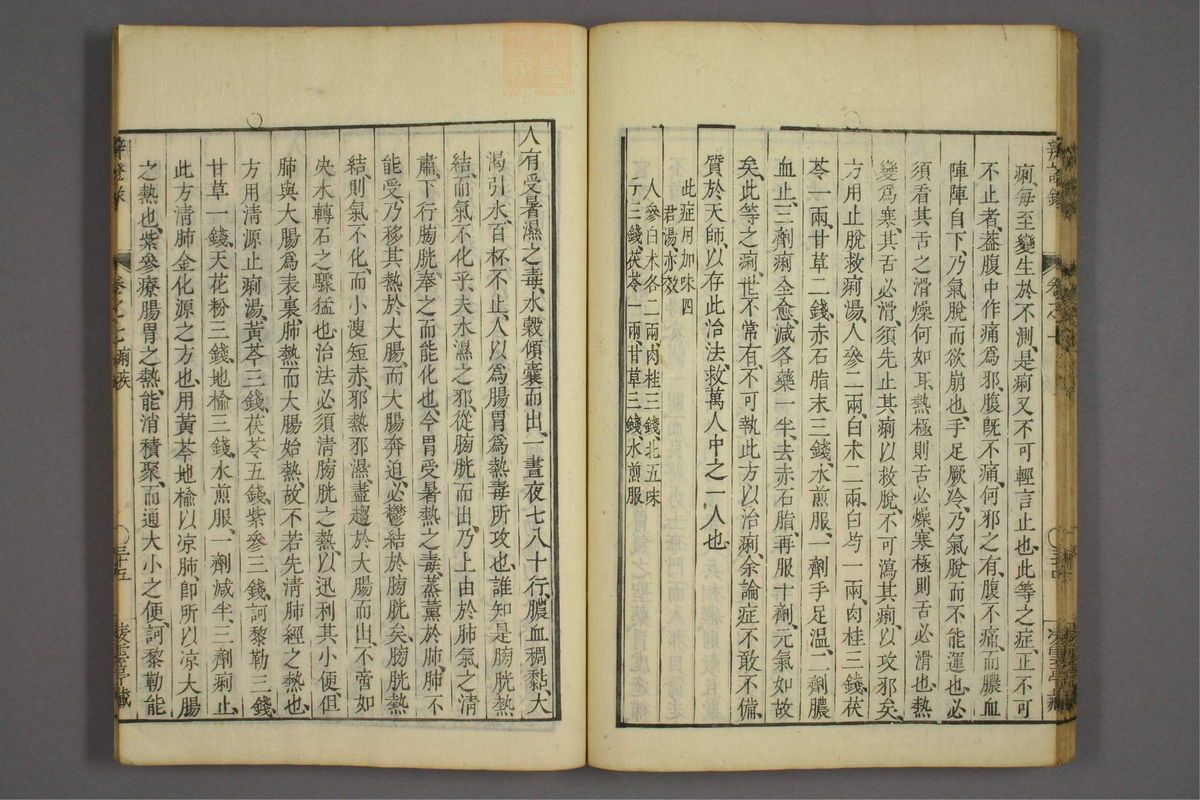 辨証錄
卷之七
三十四
凌雲亭藏
痢每至變生於不測是痢又不可輕言止也此等之症止不可
不止者葢腹中作痛爲邪腹旣不痛何邪之有腹不痛而膿血
陣陣自下乃氣脫而欲崩也手足厥冷乃氣脫而不能運也必
須看其舌之滑燥何如耳熱極則舌必燥寒極則舌必滑也熱
變爲寒其舌必滑須先止其痢以救脫不可瀉其痢以攻邪矣
方用止脫救痢湯人參二兩白术二兩白芍一兩肉桂三錢茯
苓一兩甘草二錢赤石脂末三錢水煎服一劑手足溫二劑膿
血止三劑痢全愈減各藥一半去赤石脂再服十劑元氣如故
矣此等之痢世不常有不可執此方以治痢余論症不敢不備
質於天師以存此治法救萬人中之一人也
此症用加味四
君湯亦效
人參白术各二兩肉桂三錢北五味
子三錢茯苓一兩甘草三錢水煎服
人有受暑濕之毒水穀傾囊而出一晝夜七八十行膿血稠黏大
渴引水百杯不止人以爲腸胃爲熱毒所攻也誰知是膀胱熱
結而氣不化乎夫水濕之邪從膀胱而出乃上由於肺氣之清
肅下行膀胱奉之而能化也今胃受暑熱之毒蒸薰於肺肺不
能受乃移其熱於大腸而大腸奔迫必鬱結於膀胱矣膀胱熱
結則氣不化而小溲短赤邪熱邪濕盡趨於大腸而出不啻如
决水轉石之驟猛也治法必須清膀胱之熱以迅利其小便但
肺與大腸爲表裏肺熱而大腸始熱故不若先清肺經之熱也
方用清源止痢湯黃芩三錢茯苓五錢紫參三錢訶黎勒三錢
甘草一錢天花粉三錢地榆三錢水煎服一劑減半三劑痢止
此方清肺金化源之方也用黃芩地榆以凉肺卽所以凉大腸
之熱也紫參療腸胃之熱能消積聚而通大小之便訶黎勒能
辨證錄
卷之七痢疾
三十五
凌雲亭藏